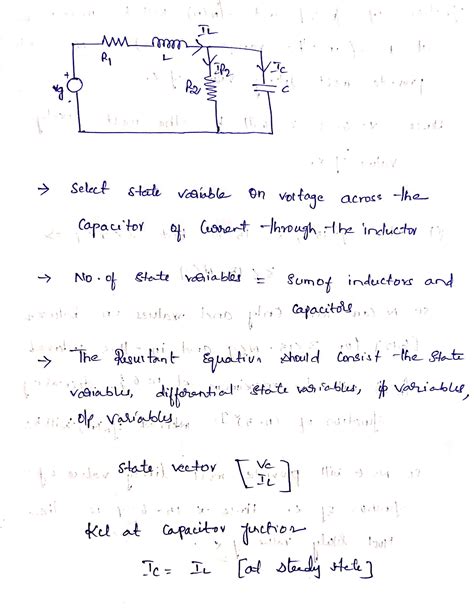 IL
R1
L
IR2
IC
vg
+
-
R2
C
→ Select state variable on voltage across the
Capacitor of current through the inductor
→ No. of State variables = sum of inductors and
capacitors
→ The Resultant Equation should consist the state
variables, differential state variables, i/p variables,
o/p variables
State vector [ Vc
IL ]
Kcl at capacitor junction
Ic = IL [at steady state]